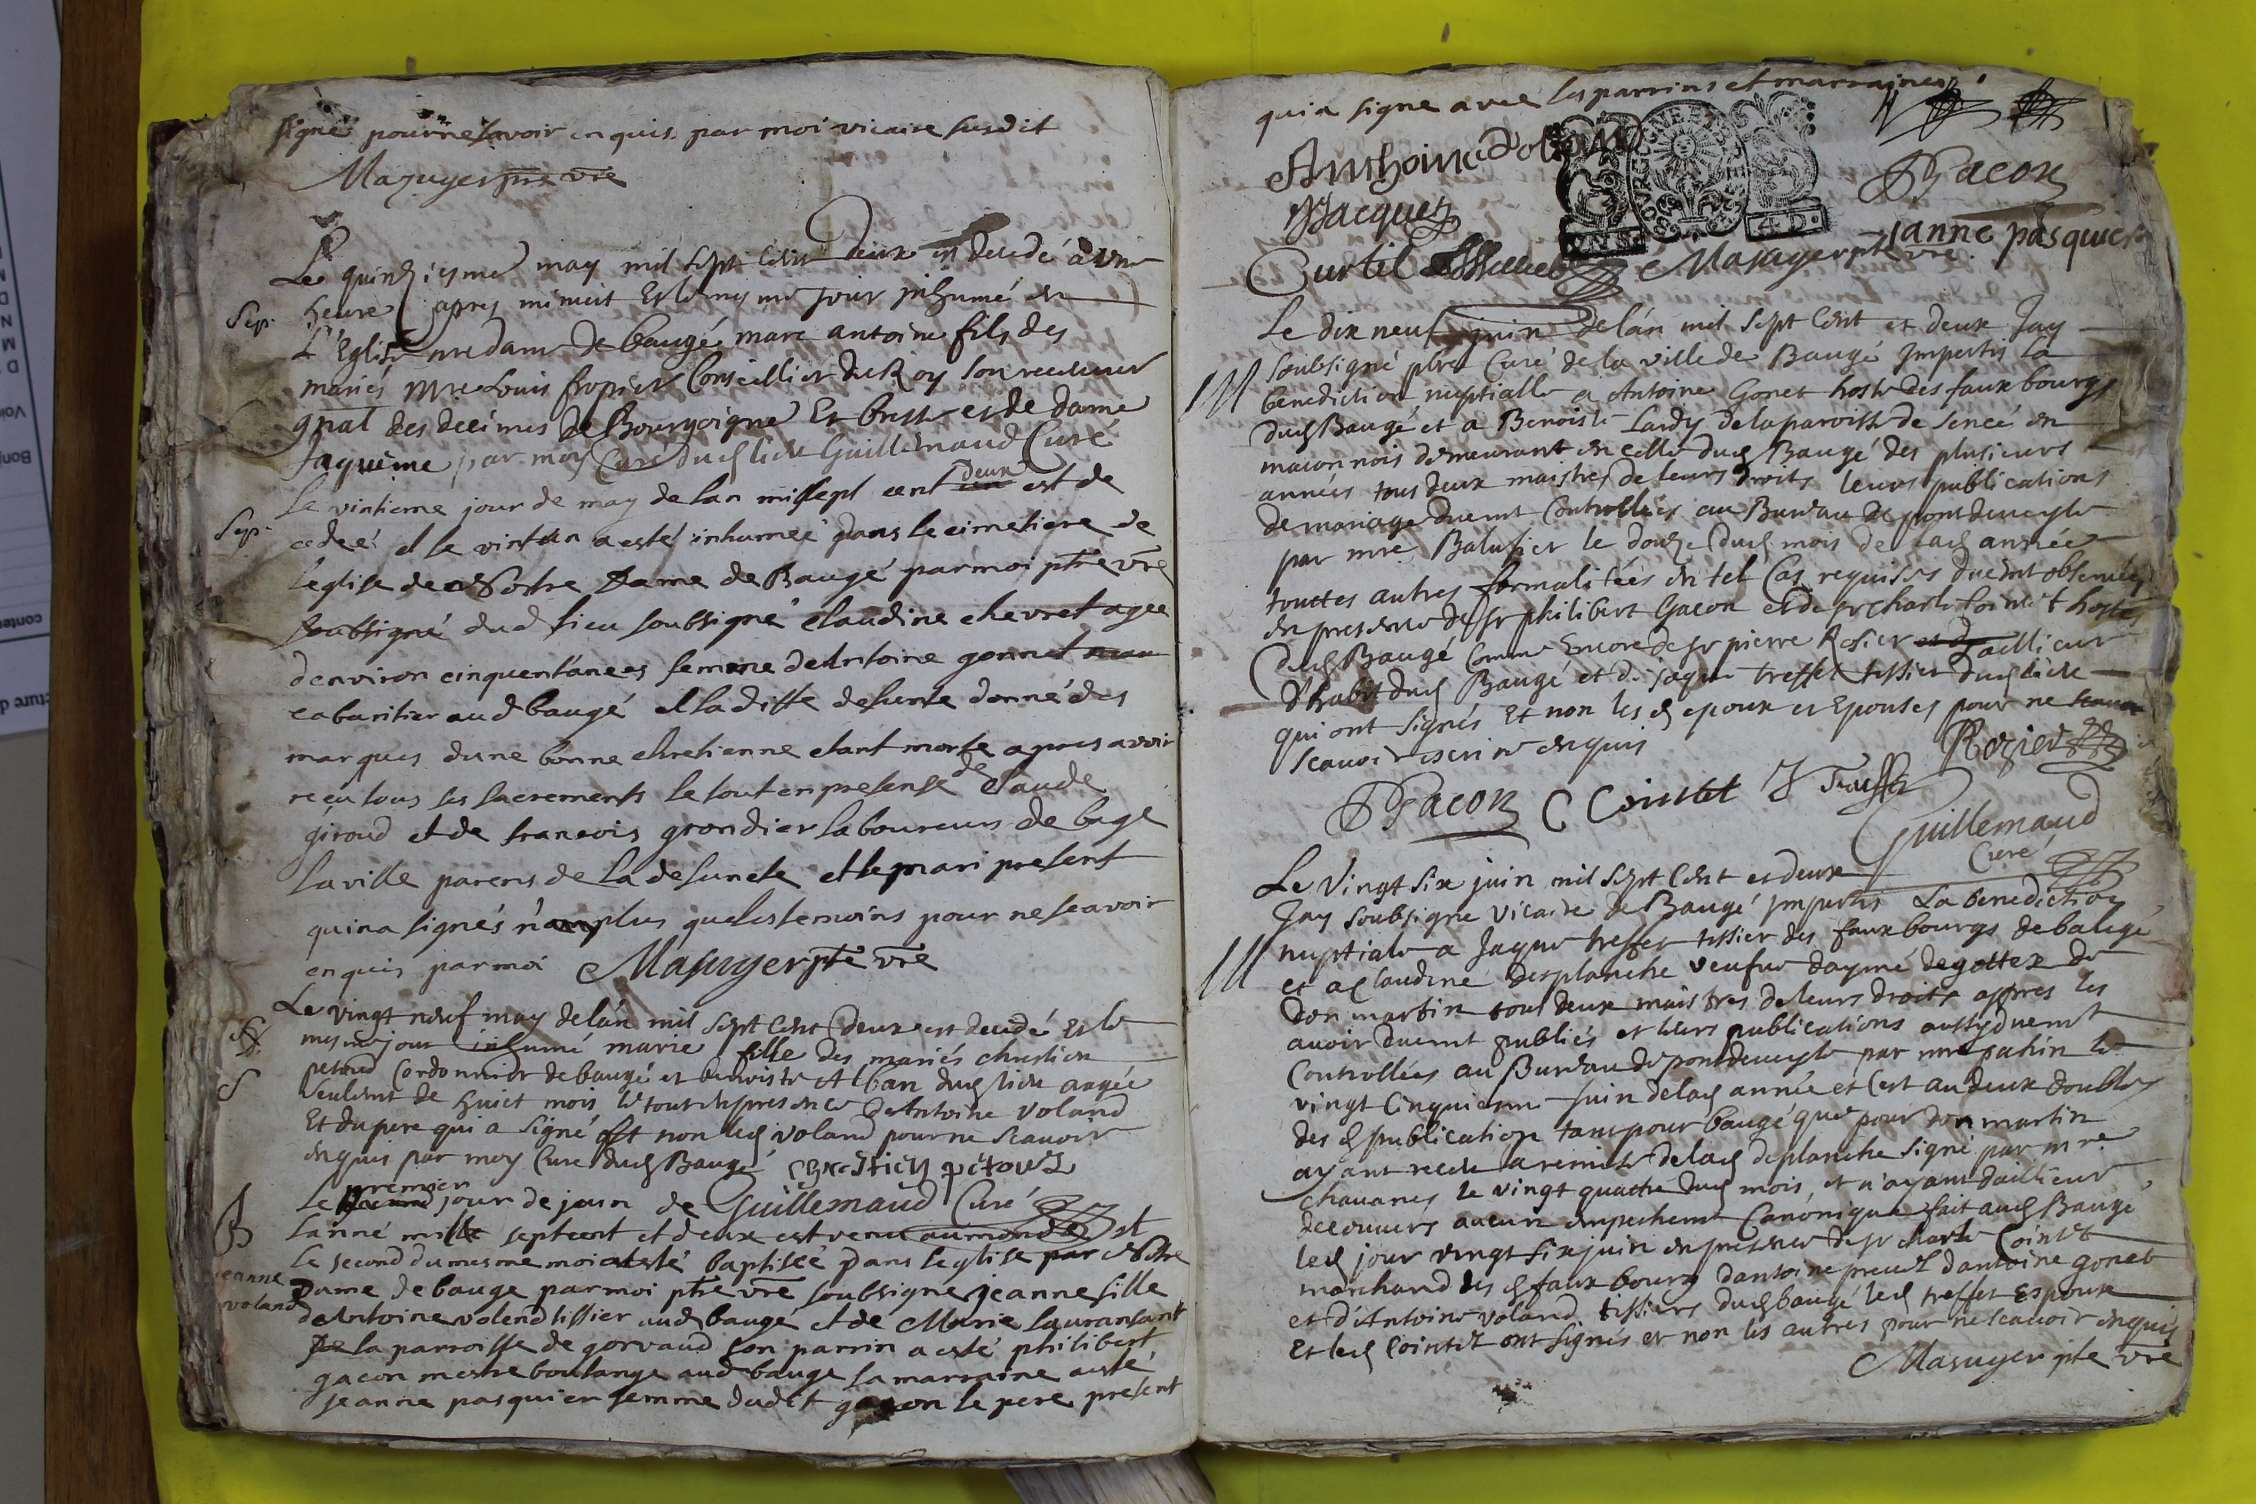 signé pour ne scavoir enquis par moi vicaire susdit
Mazuyer ptre vre
Le quinziesme may mil sept cent deux est decedé a une
Sep.
heure apres minuit et le mesme jour inhumé en
L'Eglise nre dame de baugé marc antoine fils des
mariés mre Louis fropier Conseillier du Roy son receveur
gnal des decimes de Bourgoigne Et bresse et de dame
Jaqueme par moy Curé dud lieu Guillemaud Curé
Le vintieme jour de may de lan mil sept cent un deux est de
Sep.
cedeé et le vint un a esté inhumeé dans le cimetiere de
l'eglise de Nostre Dame de Baugé par moi ptre vre
soubsigné dud lieu soubsigné claudine chevret agee
denviron cinquent'anees femme de Antoine gonnet
cabaritier aud baugé et laditte defunte donné des
marques dune bonne chretienne etant morte apres avoir
recu tous ses sacrements le tout en presense de Claude
giroud et de francois grondier laboureurs de bagé
la ville parens de la defuncte et le mari present
qui na signés n'an plus que les temoins pour ne scavoir
enquis par moi Mazuyer ptre vre
Le vingt neuf may de lán mil sept cent deux est decedé et le
mesme jour inhumé marie fille des mariés chrestien
petoud Cordonnier de baugé et benoiste Alban dud lieu aagée
S
seulemt de huict mois le tout en presence de Antoine voland
Et du pere qui a signé et non led voland pour ne scavoir
enquis par moy Curé dud Baugé chrestien petoud
Guillemaud Curé
Le premier jour de juin de
B
lanné mille sept cent et deux est venu au monde et
le second du mesme moi a esté baptiseé dans leglise par Nostre
jeanne
voland
Dame de bauge par moi ptre vre soubsigne jeanne fille
de Antoine volend tissier aud baugé et de Marie lauransant
De la parroisse de gorvaud son parrin a esté philibert
gacon mestre boulange aud bauge sa marraine a esté
jeanne pasquier femme dudit gacon le pere present
qui a signe avec les parrins et marraines
Anthoine
Gacon
Jacques
janne pasquier
Curtil
Mazuyer ptre vre
Le dix neuf juin de lán mil sept cent et deux Jay
soubsigné ptre Curé de la ville de Baugé Impartis la
M
benediction nuptialle a Antoine Gonet hoste des faux bourgs
dud Baugé et a Benoiste Lardy de la paroisse de sencé en
maconnois demeurant en celle dud Baugé des plusieurs
années tous deux maistres de leurs droits leurs publications
de mariage duemt Controllées au Bureau de pont de veyle
par mre Balusier le douze dud mois de lad année
touttes autres formalitéés en tel Cas requises duemt observées
en presence de sr philibert Gacon et de sr charle Cointet hostes
dud Baugé comme Encore de sr pierre Rosier et d taillieur
d'habit dud Baugé et de jaque treffet tissier dud lieu
qui ont signés Et non les d epoux et Epouses pour ne
scavoir escrire enquis
Rozier
P Gacon C Cointet J Treffet
Guillemaud
Curé
Le vingt six juin mil sept cent et deux
Jay soubsigné vicaire de Baugé Impartis La benediction
M
nuptiale a Jaque treffet tissier des faux bourgs de baugé
et a Claudine desplanche veufve daymé degottex de
don martin tous deux maistres de leurs droits appres les
avoir duemt publiés et leurs publications aussy duemt
Controllées au Bureau de pont de veyle par mre pahin le
vingt cinquieme juin de lad année et cest au deux doubles
des d publication tant pour baugé que pour don martin
ayant receu a remise de lad deplanche signé par mre
chavanes le vingt quatre dud mois, et n'ayant dailieur
decouvers aucun empechemt Canonique fait aud Baugé
led jour vingt six juin en presence de sr charle Cointet
marchand des d faux bourgs dantoine preud dantoine gonet
et d'Antoine voland tissiers dud baugé led treffet Espoux
Et led Cointet ont signés et non les autres pour ne scavoir enquis
Mazuyer ptre vre